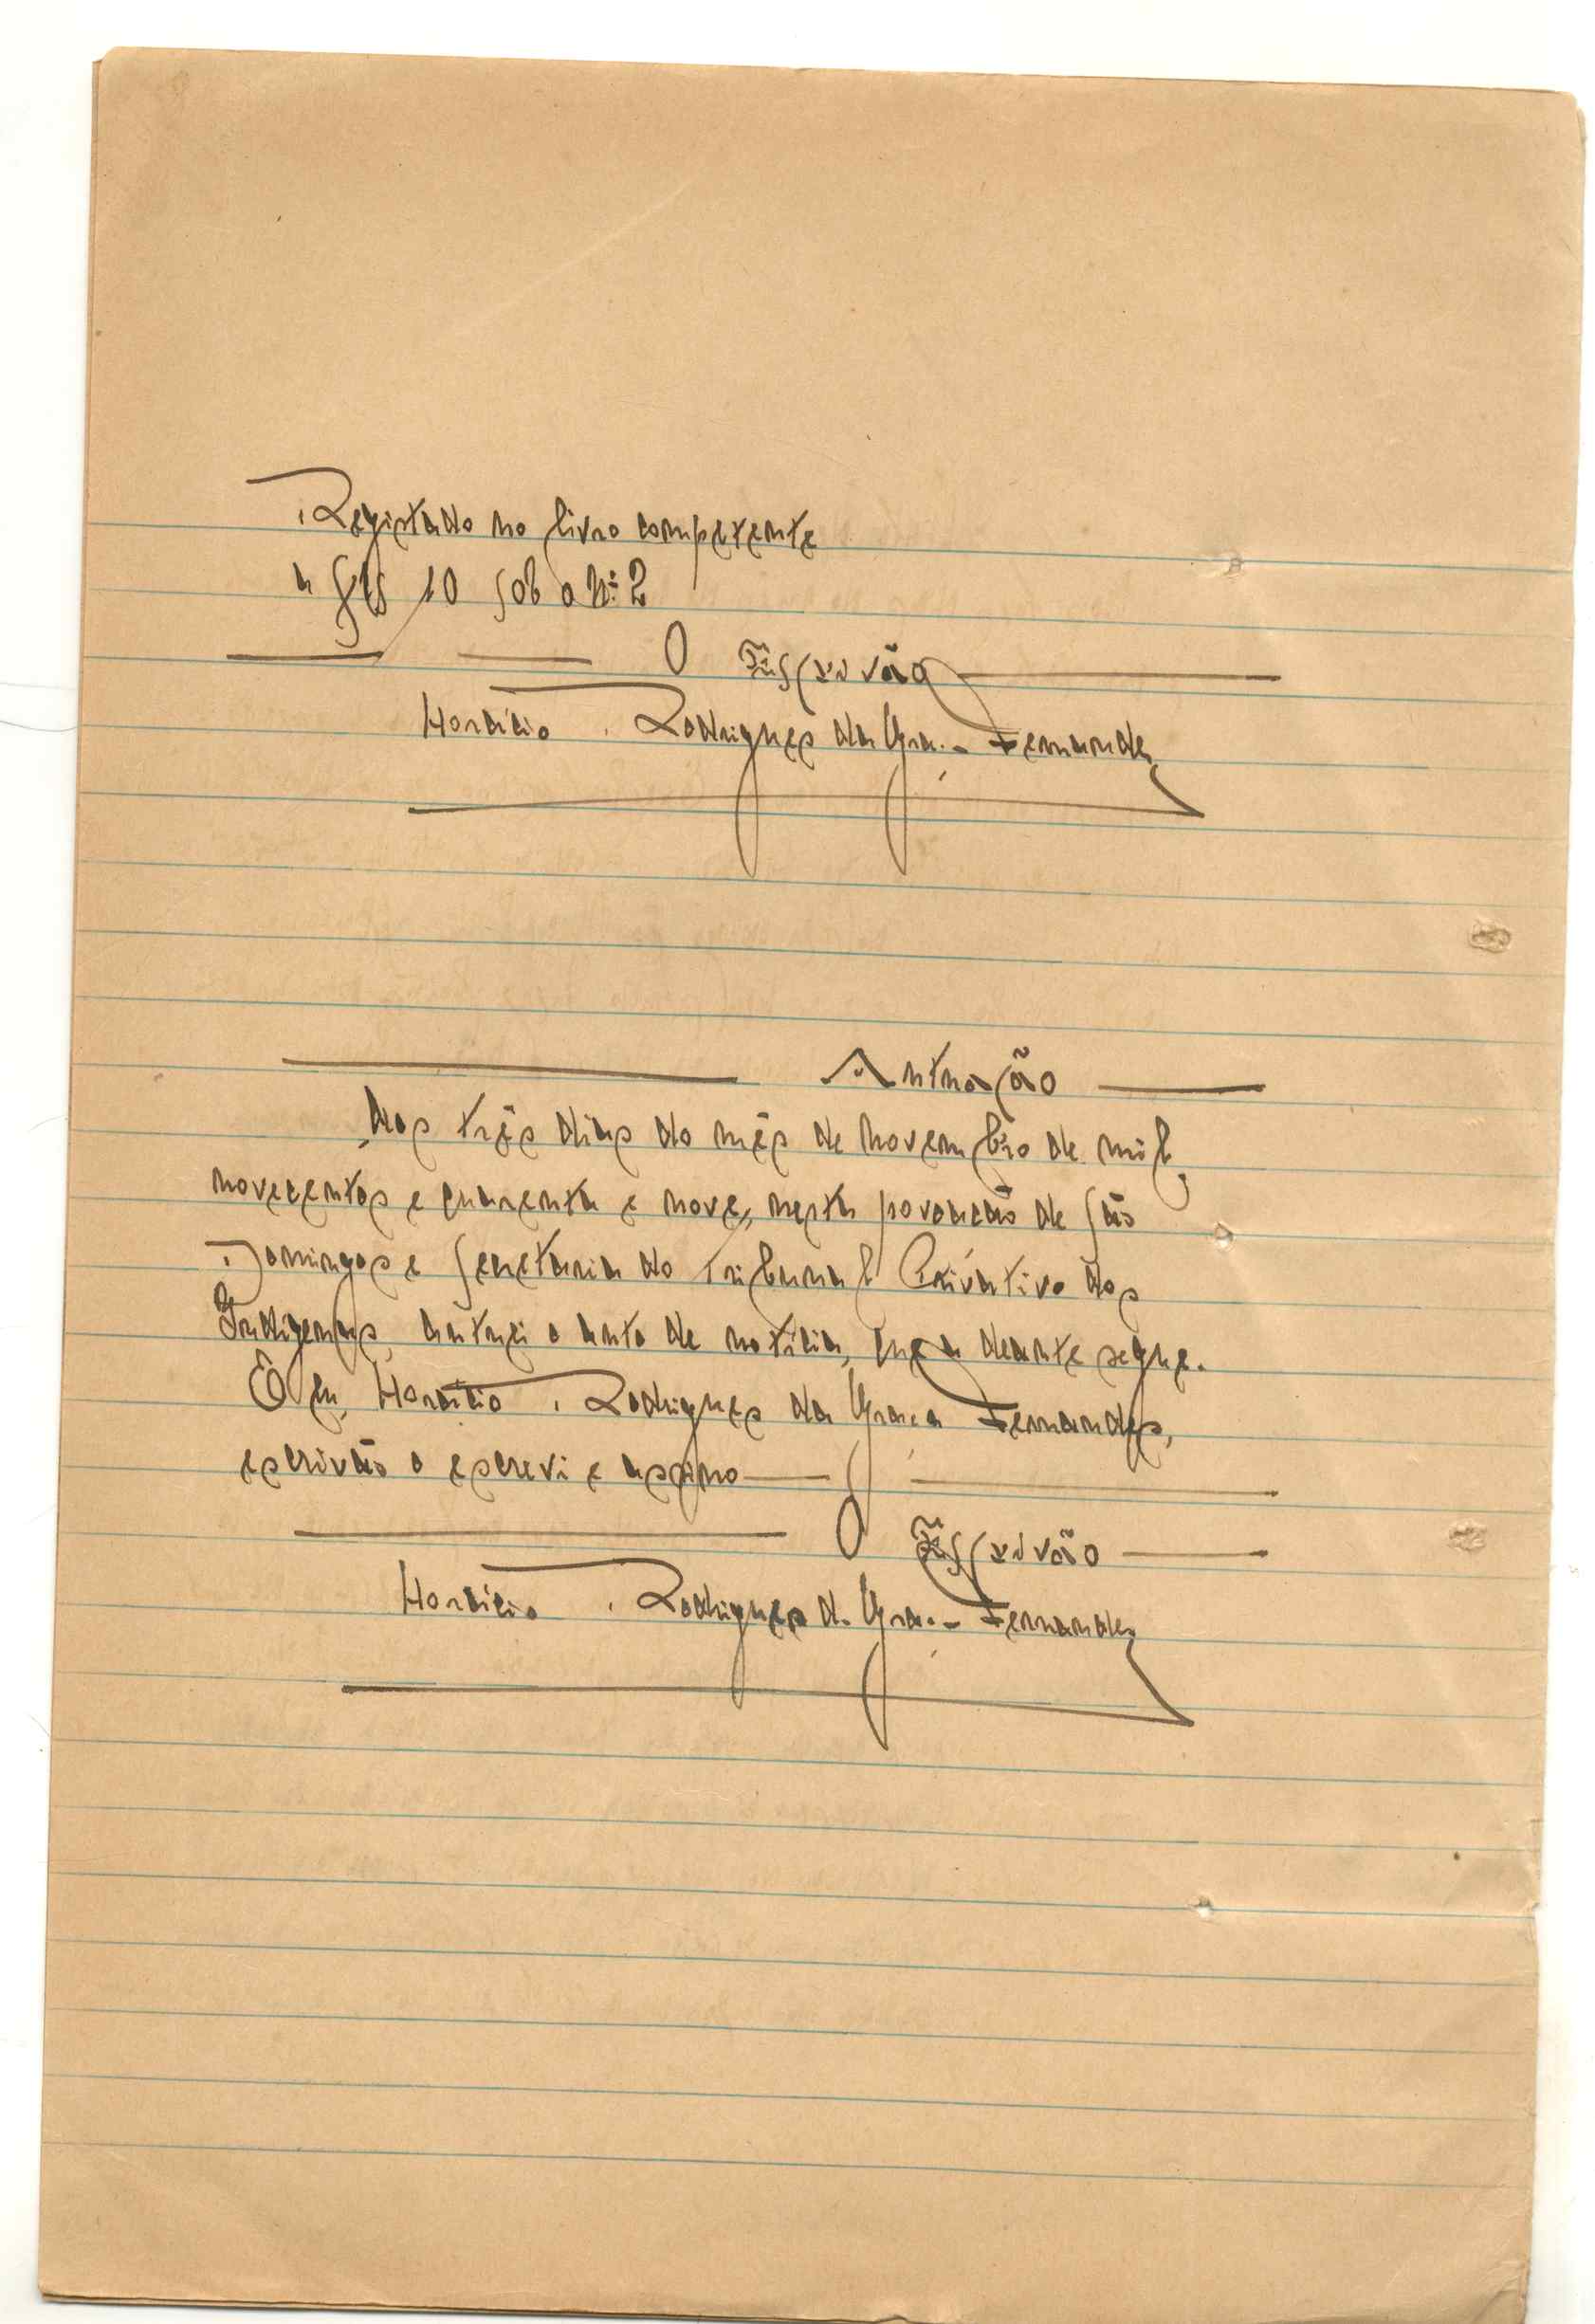 Registado no livro competente
a fls 10 sob o nº 2
O Escrivão
Horácio Rodrigues da Graça Fernandes
Autuação
Aos três dias do mês de Novembro de mil
novecentos e quarenta e nove, nesta povoação de São
Domingos e Secretaria do Tribunal Privativo dos
Indígenas, autuei o auto de notícia, que a deante segue.
E eu, Horácio Rodrigues da Graça Fernandes,
escrivão o escrevi e assino
O Escrivão
Horácio Rodrigues da Graça Fernandes